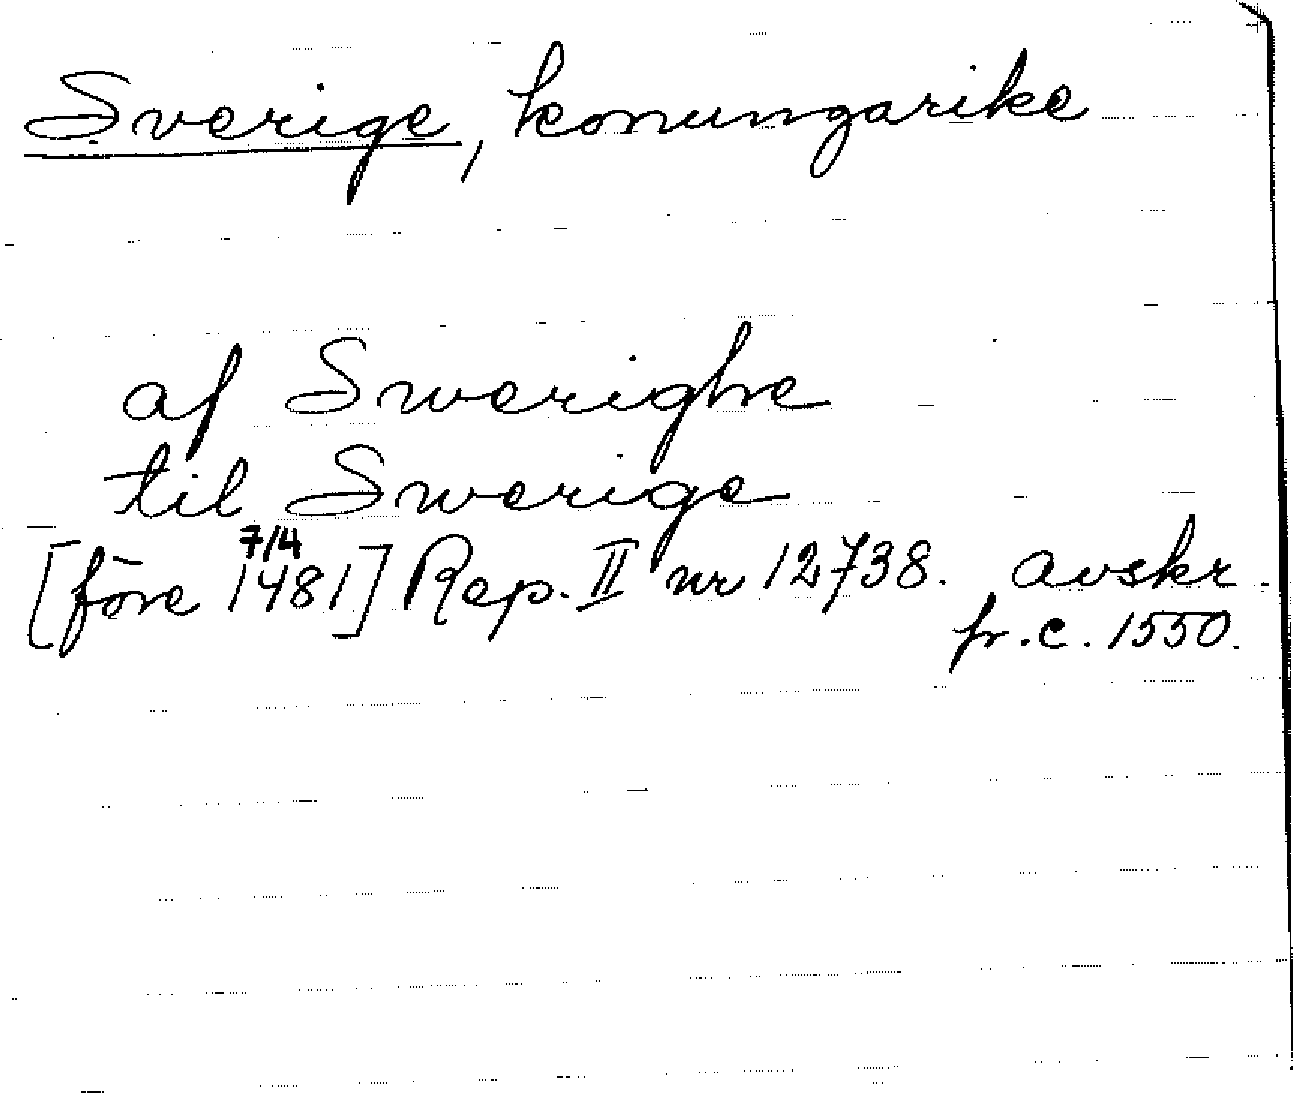 Sverige, konungarike
af Swerighe
til Swerige
[före 7/4 1481] Rep. II nr 12738. avskr.
fr. c. 1550.